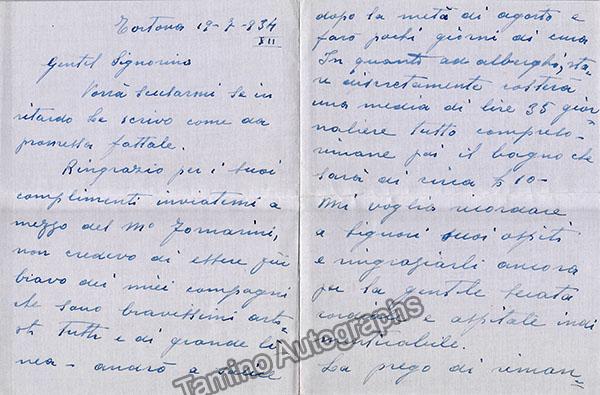 Tortona 19-7-934
XII
Gentil Signorina
Vorrà scusarmi se in
ritardo Le scrivo come da
promessa fattale.
Ringrazio per i suoi
complimenti inviatemi a
mezzo del Mº Fornarini,
non credevo di essere più
bravo dei miei compagni
che sono bravissimi arti=
sti tutti e di grande li
nea - andrò a
dopo la metà di agosto e
farò pochi giorni di cura
In quanto ad alberghi, sta
re discretamente costerà
una media di lire 35 gior
naliere tutto compreso-
rimane poi il bagno che
sarà di circa £ 10-
Mi voglia ricordare
a Signori suoi ospiti
e ringraziarli ancora
per la gentile serata
e ospitale indi
menticabile.
La prego di riman=
Tamino Autographs